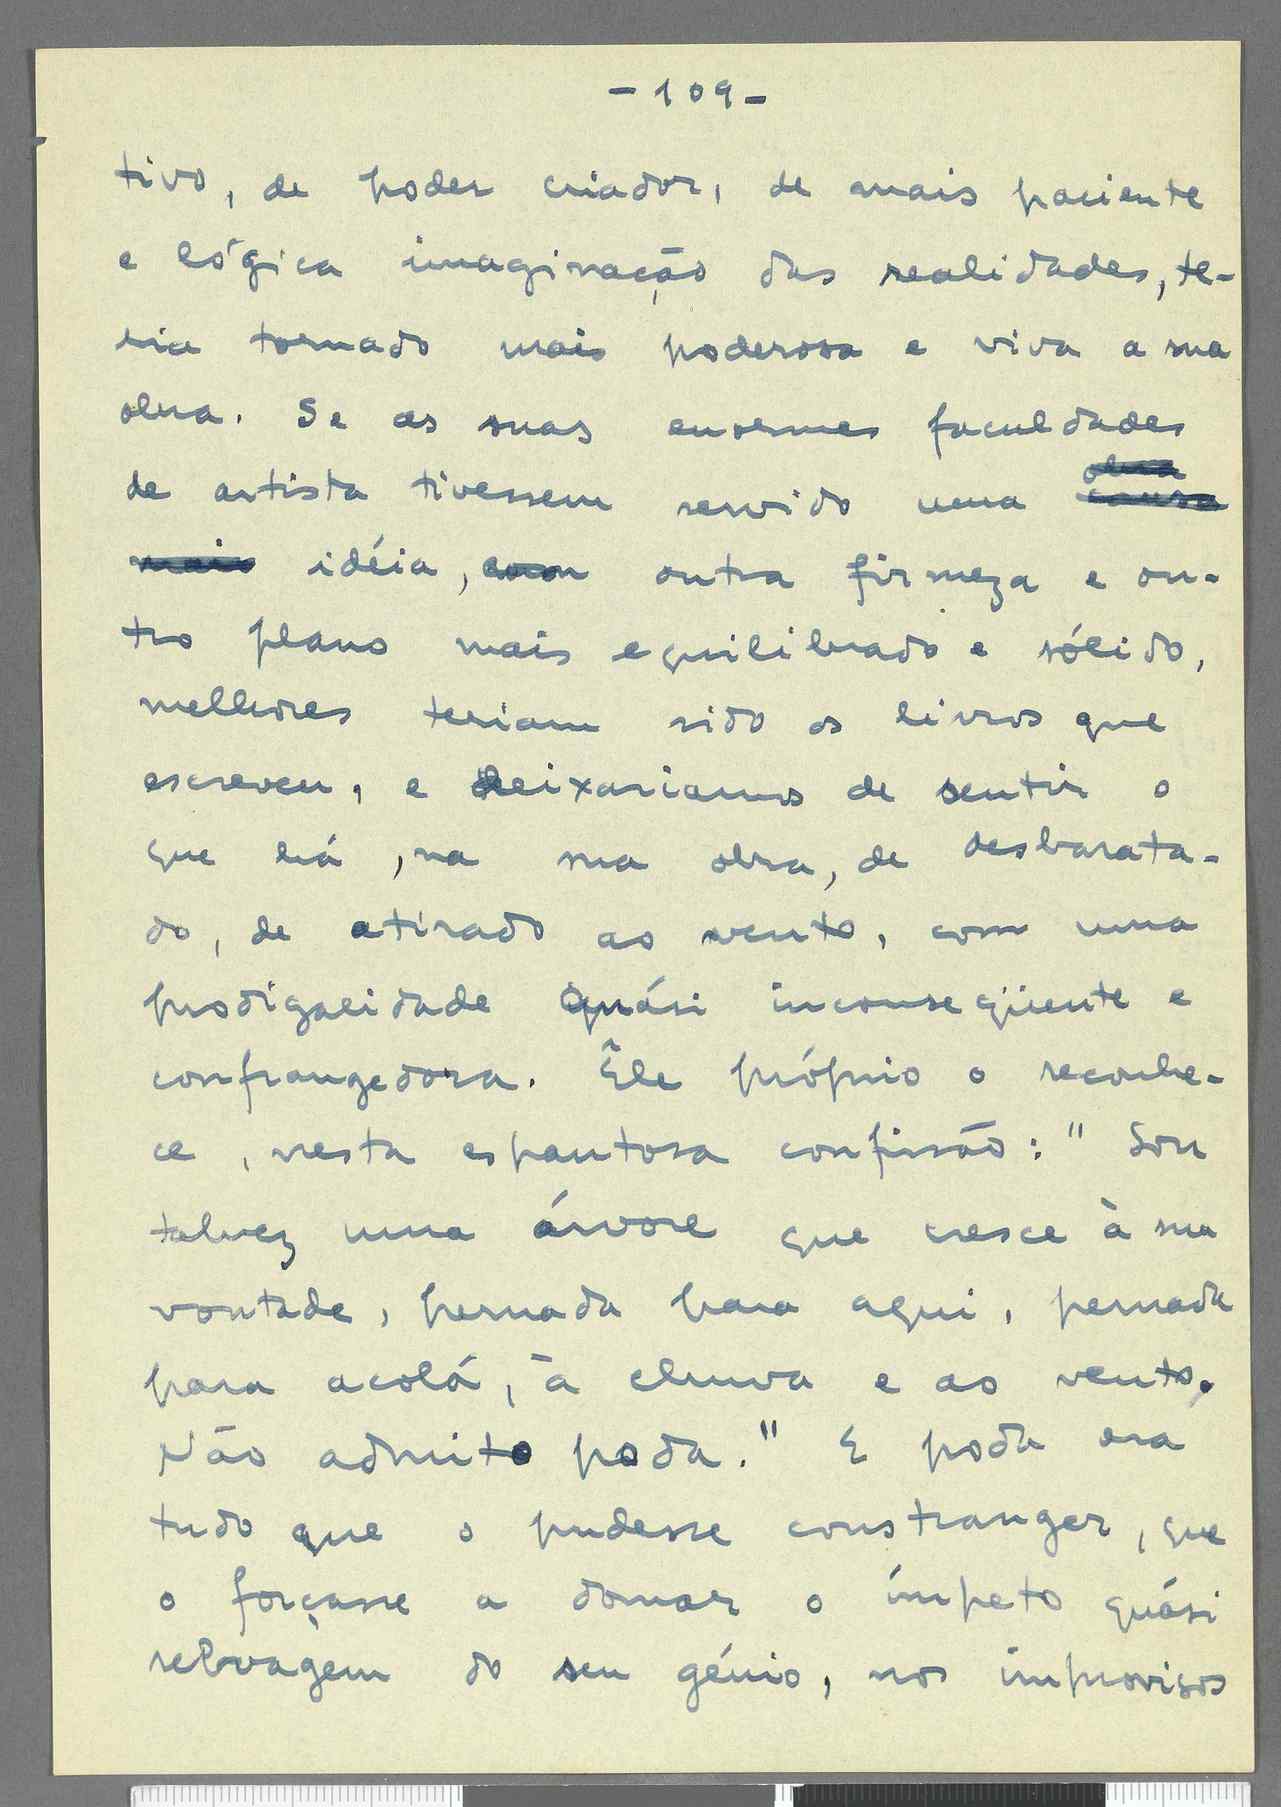 - 109 -
tivo, de poder criador, de mais paciente
e lógica imaginação das realidades, te-
ria tornado mais poderosa e viva a sua
obra. Se as suas enormes faculdades
de artista tivessem servido uma obra causa
mais idéia, com outra firmeza e ou-
tro plano mais equilibrado e sólido,
melhores teriam sido os livros que
escreveu, e deixaríamos de sentir o
que há, na sua obra, de desbarata-
do, de atirado ao vento, com uma
prodigalidade quási inconseqüente e
confrangedora. Êle próprio o reconhe-
ce, nesta espantosa confissão: "Sou
talvez uma árvore que cresce à sua
vontade, pernada para aqui, pernada
para acolá, à chuva e ao vento.
Não admito poda." E poda era
tudo que o pudesse constranger, que
o forçasse a domar o ímpeto quási
selvagem do seu génio, nos improvisos